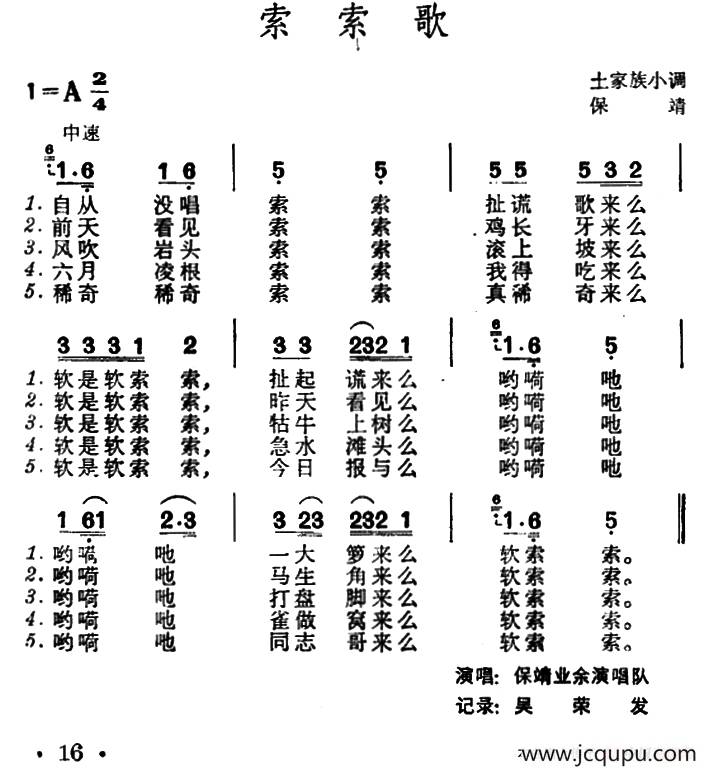 索索歌
1=A 2/4
土家族小调
保靖
中速
6 1·6 1 6 | 5 5 | 5 5 5 3 2
1. 自从 没唱 索 索 扯谎 歌来么
2. 前天 看见 索 索 鸡长 牙来么
3. 风吹 岩头 索 索 滚上 坡来么
4. 六月 凌根 索 索 我得 吃来么
5. 稀奇 稀奇 索 索 真稀 奇来么
3 3 3 1 2 | 3 3 232 1 | 6 1·6 5
1. 软是软索 索, 扯起 谎来么 哟嗬 吔
2. 软是软索 索, 昨天 看见么 哟嗬 吔
3. 软是软索 索, 牯牛 上树么 哟嗬 吔
4. 软是软索 索, 急水 滩头么 哟嗬 吔
5. 软是软索 索, 今日 报与么 哟嗬 吔
1 61 2·3 | 3 23 232 1 | 6 1·6 5
1. 哟嗬 吔 一大 箩来么 软索 索。
2. 哟嗬 吔 马生 角来么 软索 索。
3. 哟嗬 吔 打盘 脚来么 软索 索。
4. 哟嗬 吔 雀做 窝来么 软索 索。
5. 哟嗬 吔 同志 哥来么 软索 索。
演唱：保靖业余演唱队
记录：吴荣发
· 16 ·
www.jcqupu.com